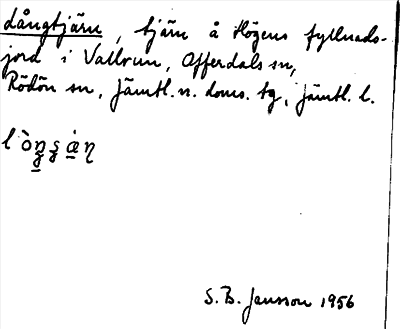 Långtjärn, tjärn å Högens fyllnads-
jord i Vallrun, Offerdals sn,
Rödön sn, Jämtl. n. doms. tg, Jämtl. l.
S.B. Jansson 1956